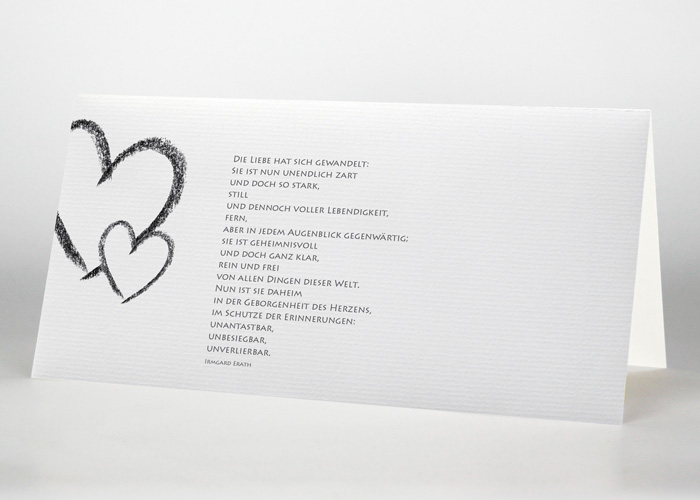 Die Liebe hat sich gewandelt:
Sie ist nun unendlich zart
und doch so stark,
still
und dennoch voller Lebendigkeit,
fern,
aber in jedem Augenblick gegenwärtig;
sie ist geheimnisvoll
und doch ganz klar,
rein und frei
von allen Dingen dieser Welt.
Nun ist sie daheim
in der Geborgenheit des Herzens,
im Schutze der Erinnerungen:
unantastbar,
unbesiegbar,
unverlierbar.
Irmgard Erath